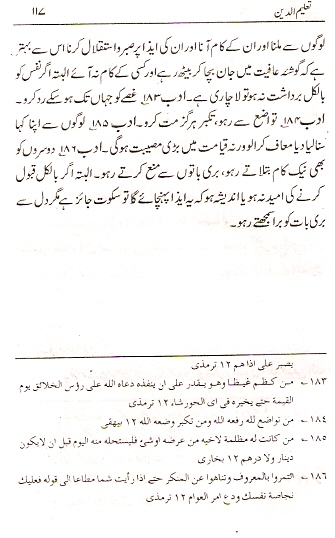 تعلیم الدین ۱۱۷
لوگوں سے ملنا اور ان کے کام آنا اور ان کی ایذا پر صبر و استقلال کرنا اس سے بہتر
ہے کہ گوشۂ عافیت میں جان بچا کر بیٹھ رہے اور کسی کے کام نہ آئے البتہ اگر نفس کو
بالکل برداشت نہ ہو تو لاچاری ہے۔ ادب ۱۸۳ غصے کو جہاں تک ہو سکے رد کرو۔
ادب ۱۸۴ تواضع سے رہو، تکبر ہرگز مت کرو۔ ادب ۱۸۵ لوگوں سے اپنا کہا
سنا لیا دیا معاف کرالو ورنہ قیامت میں بڑی مصیبت ہوگی۔ ادب ۱۸۶ دوسروں کو
بھی نیک کام بتلاتے رہو، بری باتوں سے منع کرتے رہو۔ البتہ اگر بالکل قبول
کرنے کی امید نہ ہو یا اندیشہ ہو کہ یہ ایذا پہنچائے گا تو سکوت جائز ہے مگر دل سے
بری بات کو برا سمجھتے رہو۔
یصبر علی اذاهم ۱۲ ترمذی
۱۸۳ من کظم غیظا وهو یقدر علی ان ینفذه دعاه الله علی رؤس الخلائق یوم
القیمة حتے یخیره فی ای الحور شاء ۱۲ ترمذی
۱۸۴ من تواضع لله رفعه الله ومن تکبر وضعه الله ۱۲ بیهقی
۱۸۵ من کانت له مظلمة لاخیه من عرضه اوشئ فلیستحله منه الیوم قبل ان لایکون
دینار ولا درهم ۱۲ بخاری
۱۸۶ ائتمروا بالمعروف وتناهوا عن المنکر حتے اذا رأیت شحا مطاعا الی قوله فعلیک
نجاصة نفسک ودع امر العوام ۱۲ ترمذی